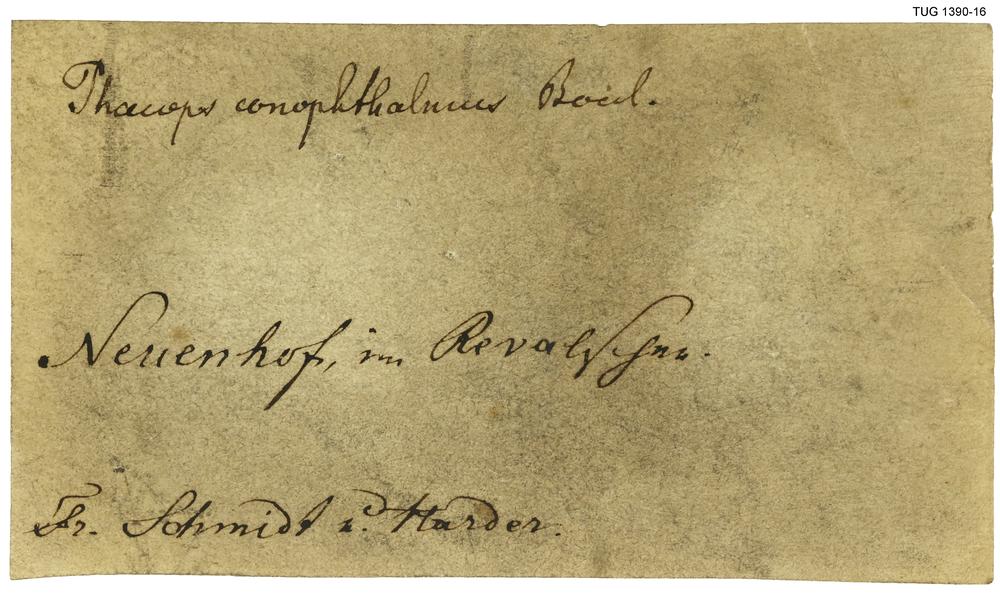 TUG 1390-16
Phacops conophthalmus Boeck.
Neuenhof, im Revalschen.
Fr. Schmidt u. Harder.